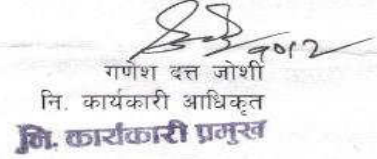 गणेश दत्त जोशी
नि. कार्यकारी आधिकृत
नि. कार्यकारी प्रमुख